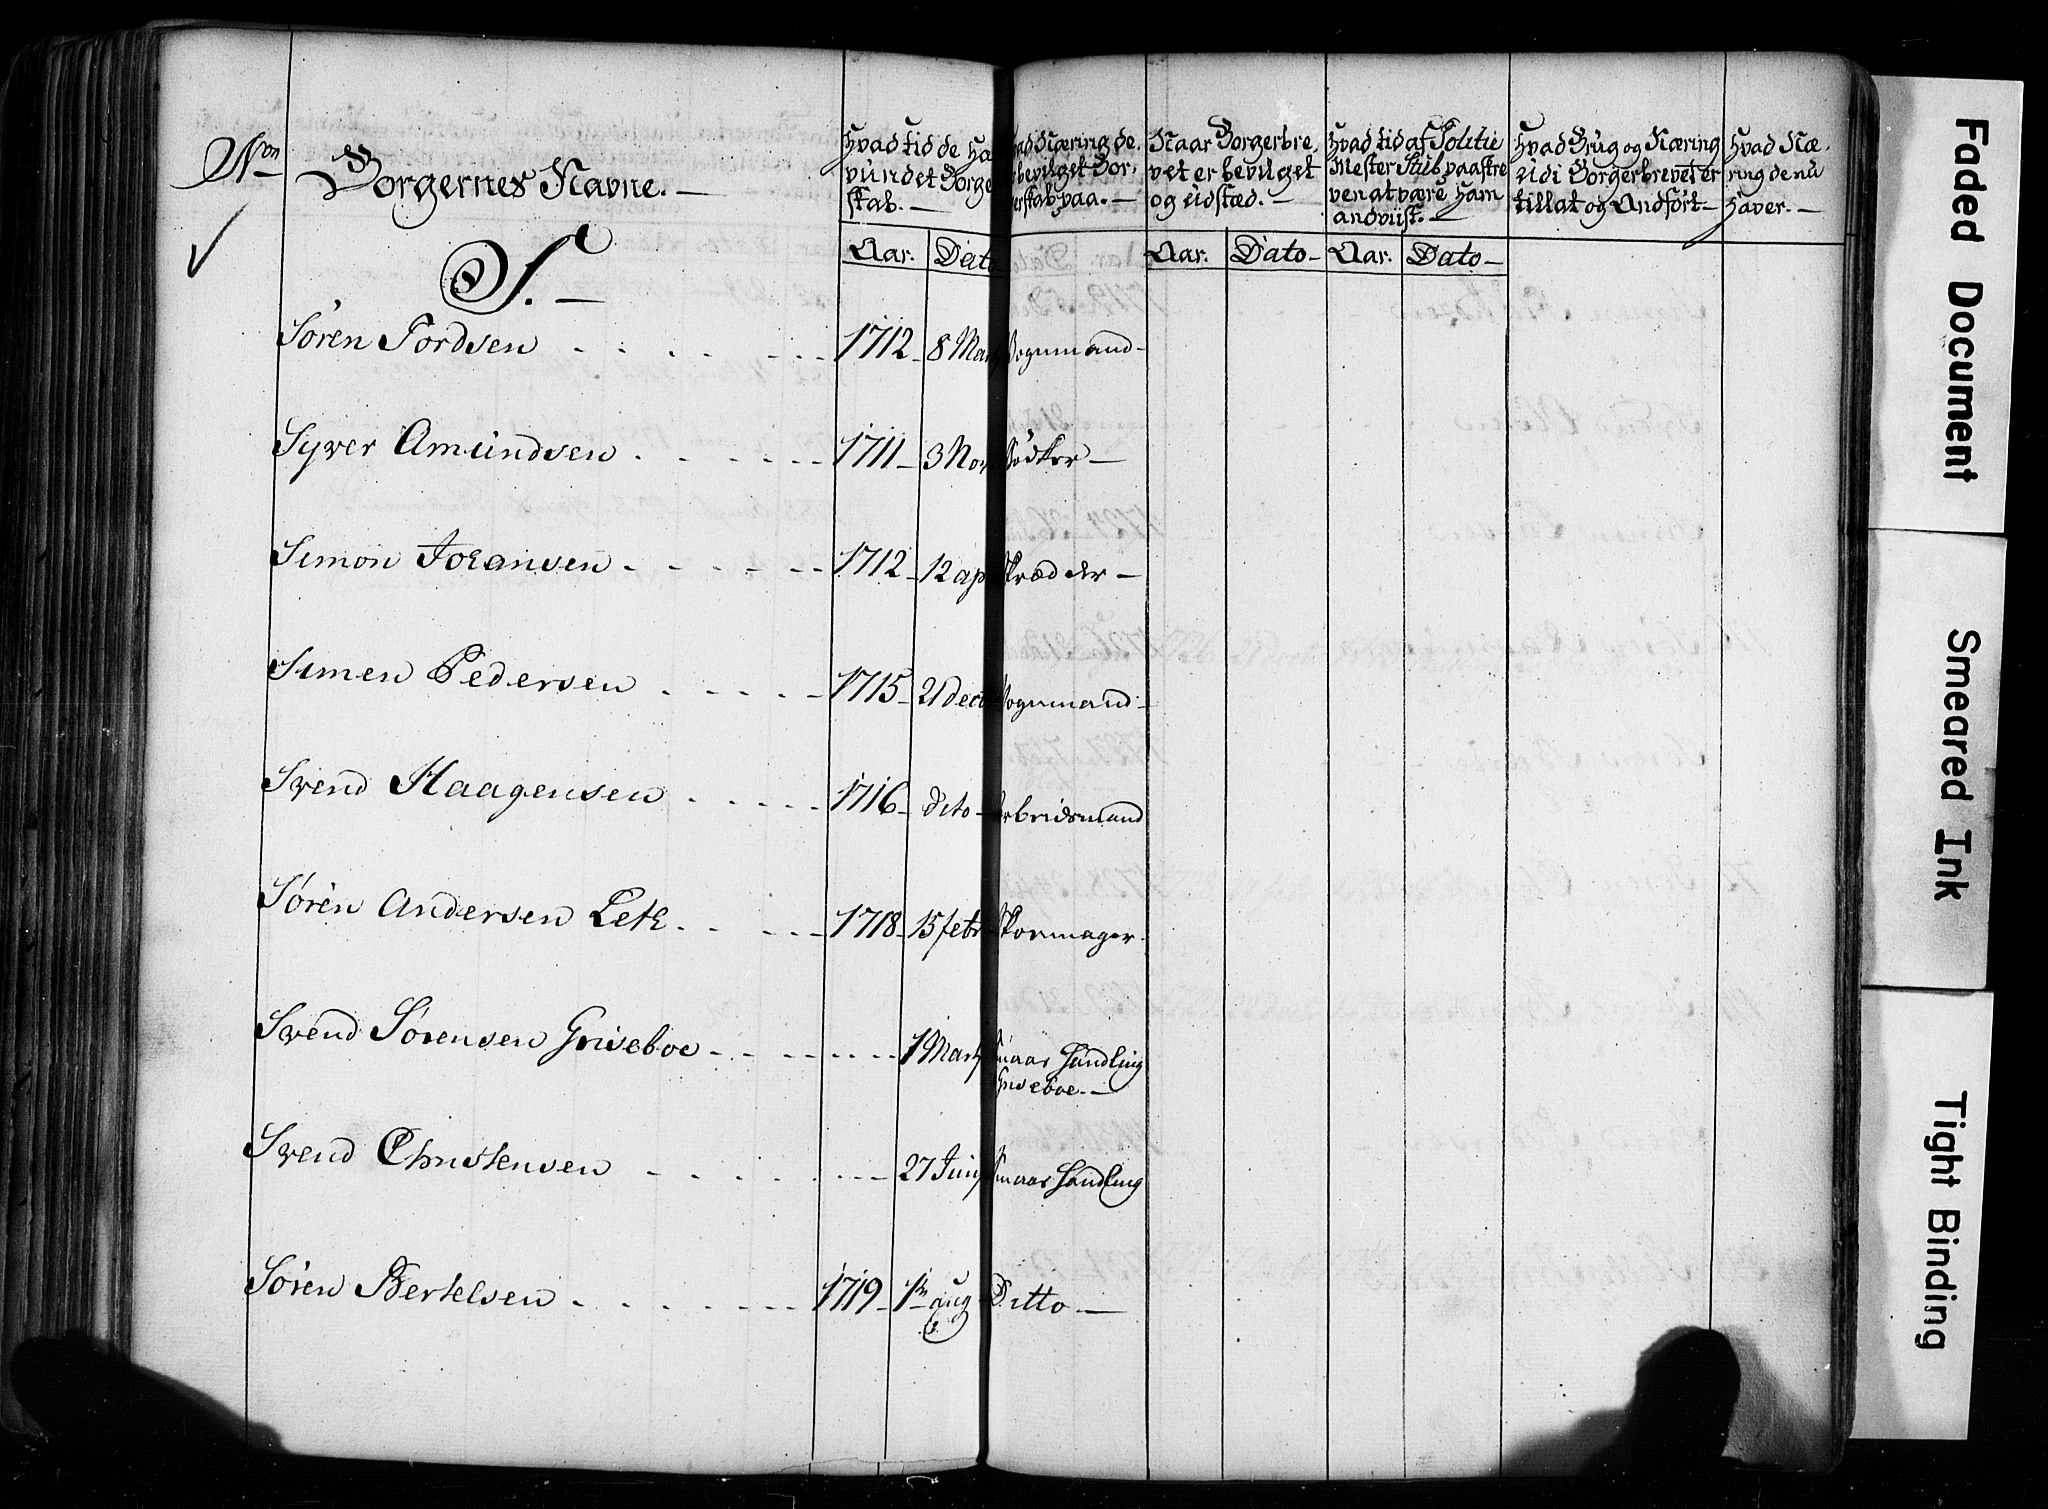 No
Borgernes Navne.
Hvad tid de Ha
vundet Borge
skab.
Næring de
bevilget Bor,
erskab paa.
Naar Borgerbre,
vet er bevilget
og udstæd.
Hvad tid af Politie
Mester Stub paaskre
ven at være Ham
andviist.
Hvad Brug og Næring
udi Borgerbrevet er
tillat og Andført
Hvad Næ,
ring de nu
Haver.
Aar. Dato Aar. Dato Aar. Dato
S.
Søren Tordsen 1712 8 Mar Vognmand
Syver Amundsen 1711 3 Nov Bødker
Simon Johansen 1712 12 ap Skræder
Simen Pedersen 1715 21 dec Vognmand
Svend Haagensen 1716 dito Arbeidsmand
Søren Andersen Leth 1718 15 febr Skoemager
Svend Sørensen Griseboe 1 Marty Smaae Handling
Griseboe.
Svend Christensen 27 Juny Smaae Handling
Søren Bertelsen 1719 1 aug Ditto
Faded Document
Smeared Ink
Tight Binding